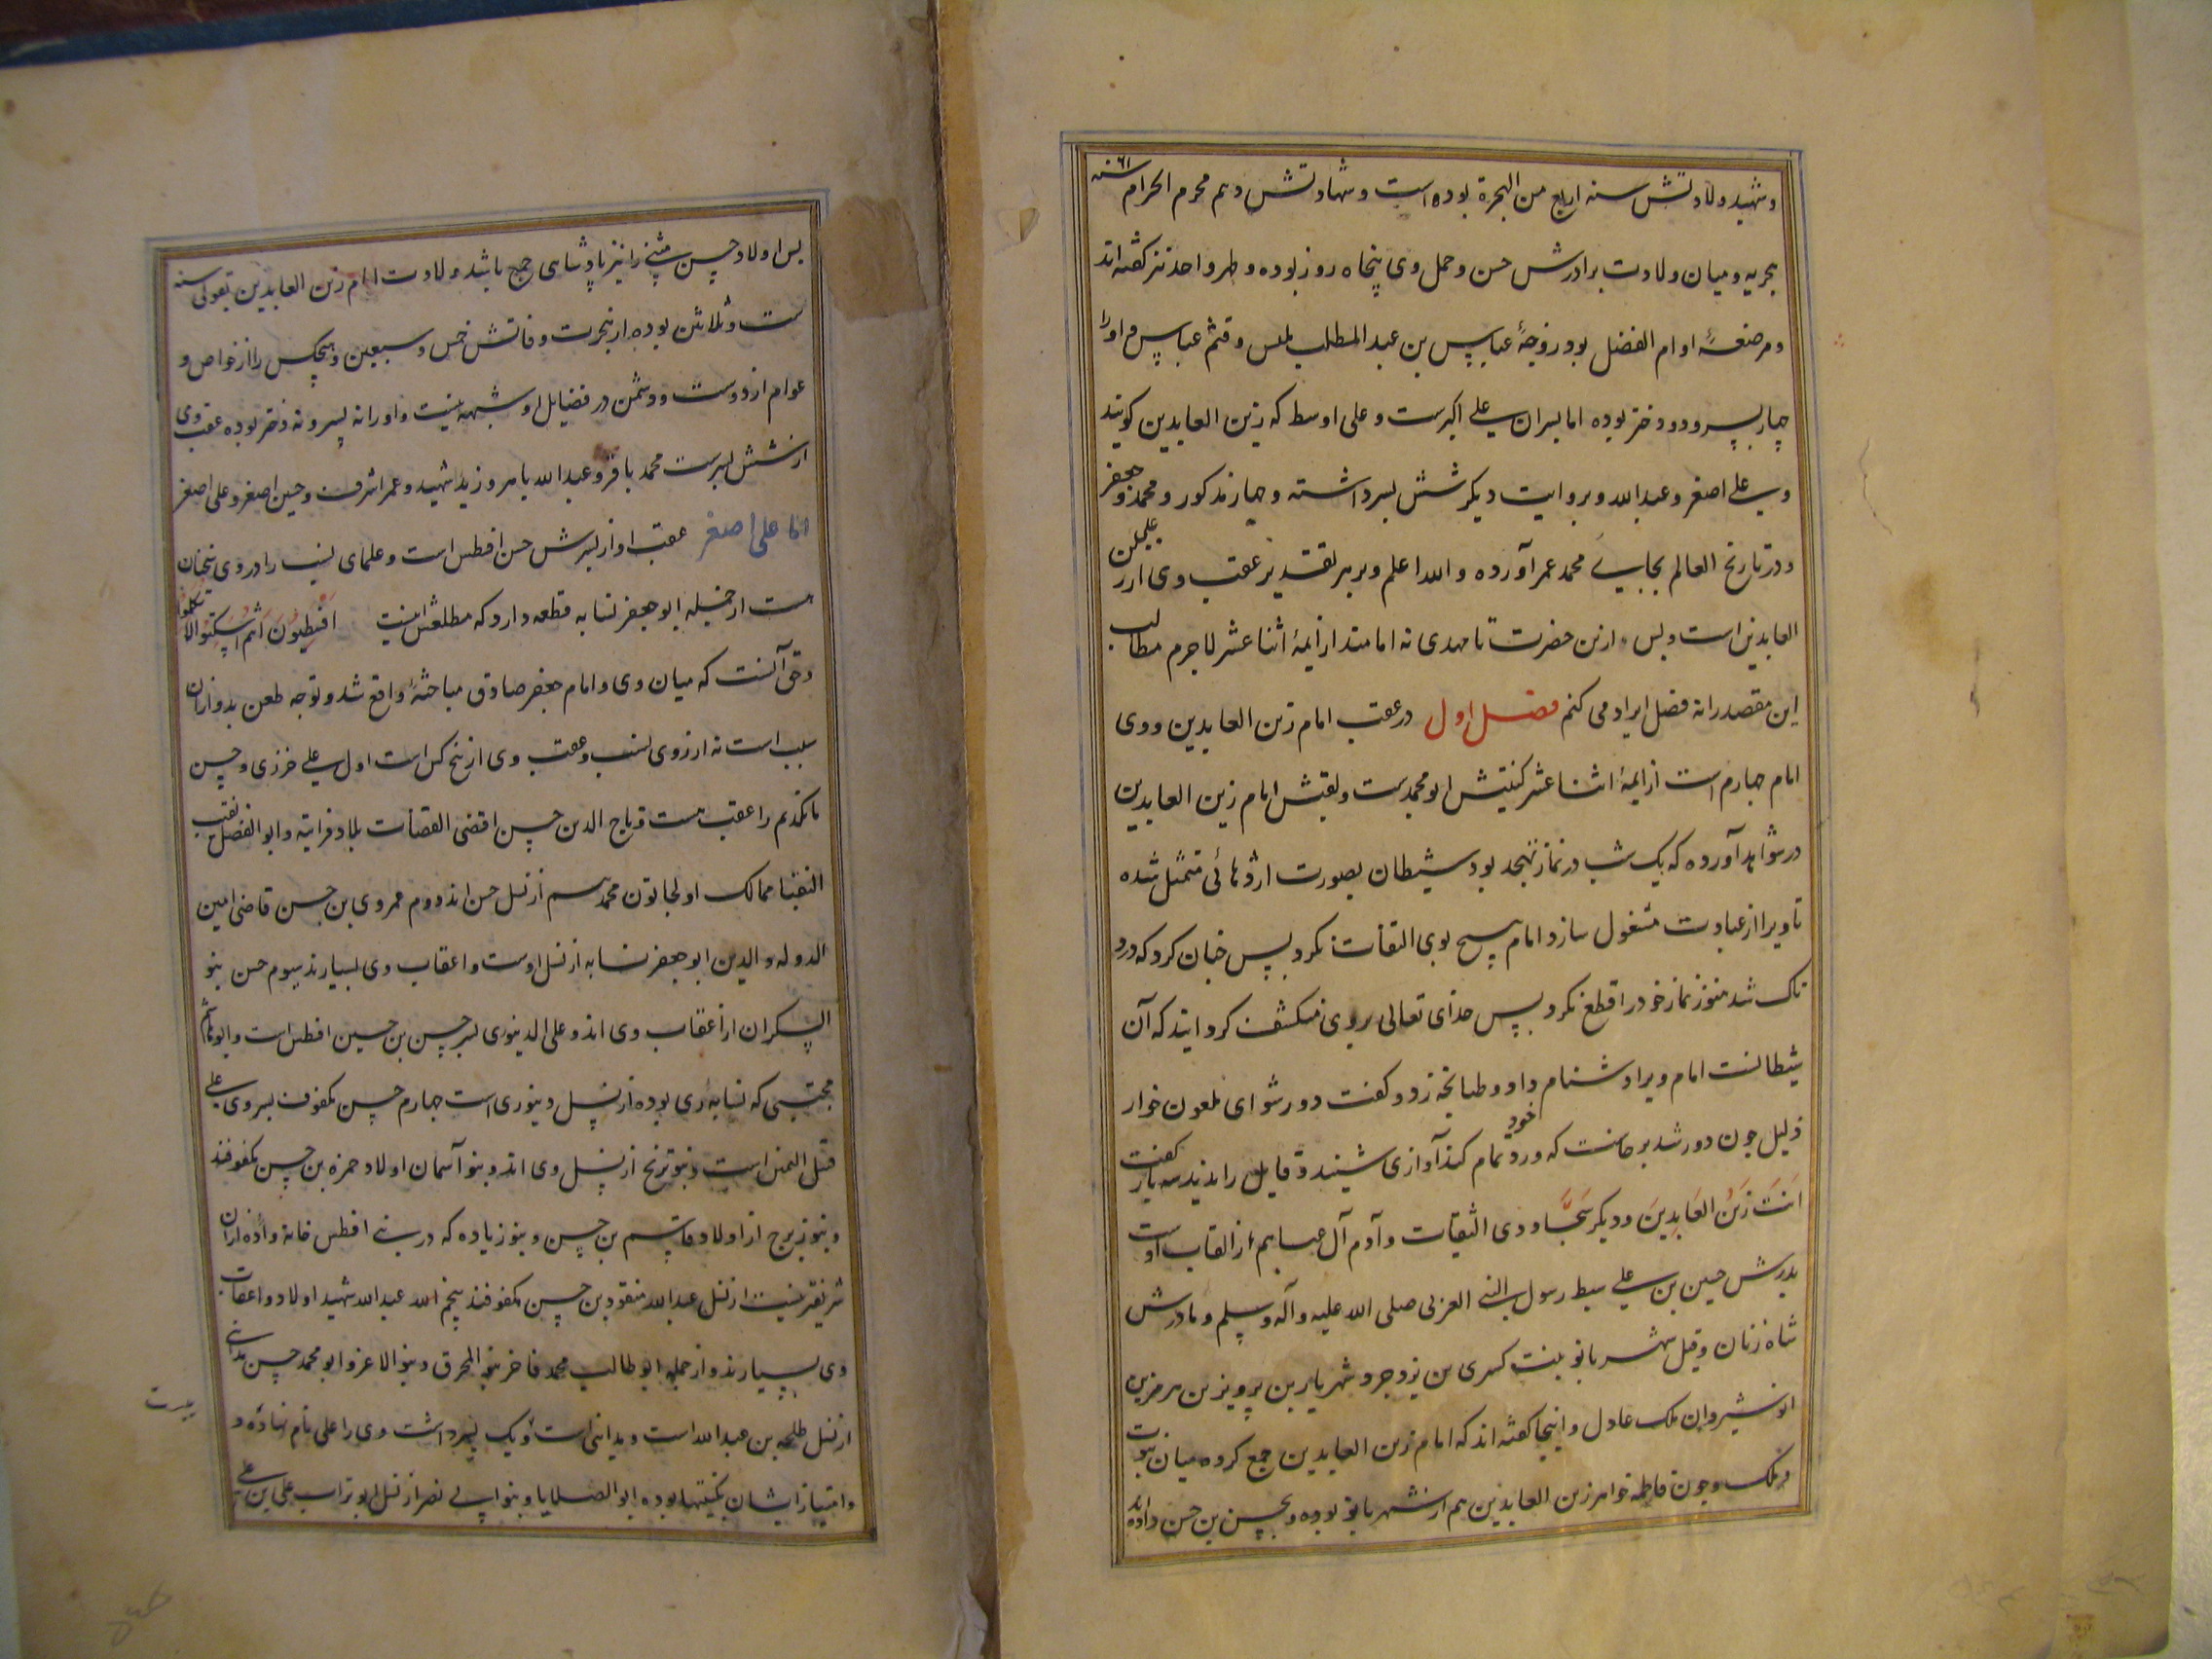 و شهید ولادتش سنه اربع من الهجرة بوده است و شهادتش دهم محرم الحرام سنه ٦١
هجریه و میان ولادت برادرش حسن و حمل وی پنجاه روز بوده و طهر واحد نیز گفته اند
و مرضعهٔ او ام الفضل بود زوجهٔ عباس بن عبد المطلب بلبن و قثم عباس و او را
چهار پسر و دو دختر بوده اما پسران علی اکبرست و علی اوسط که زین العابدین گویند
و علی اصغر و عبدالله و بروایت دیگر شش پسر داشته و چهار مذکور و محمد و جعفر
و در تاریخ العالم بجای محمد عمر آورده و الله اعلم و بر هر تقدیر عقب وی از
العابدین است و بس ازین حضرت تا مهدی نه امامند از ایمهٔ اثنا عشر لاجرم مطالب
این مقصد را نه فصل ایراد می کنم فصل اول در عقب امام زین العابدین و وی
امام چهارم است از ایمهٔ اثنا عشر کنیتش ابو محمدست و لقبش امام زین العابدین
در شواهد آورده که یک شب در نماز تهجد بود شیطان بصورت اژدهائی متمثل شده
تا ویرا از عبادت مشغول سازد امام هیچ بوی التفات نکرد پس چنان کرد که درد
ناک شد هنوز نماز خود را قطع نکرد پس خدای تعالی بر وی منکشف گردانید که آن
شیطانست امام ویرا دشنام داد و طبانچه زد و گفت دور شو ای ملعون خوار
ذلیل چون دور شد برخاست که ورد خود تمام کند آوازی شنید و قایل را ندید سه بار گفت
اَنتَ زَینُ العَابِدینَ و دیگر سَجّاد و ذی الثقیات و آدم آل عبا هم از القاب اوست
پدرش حسین بن علی سبط رسول النبی العربی صلی الله علیه و آله و سلم و مادرش
شاه زنان و قیل شهربانو بنت کسری بن یزدجرد شهریار بن پرویز بن هرمز بن
انوشیروان ملک عادل و اینجا گفته اند که امام زین العابدین جمع کرده میان نبوت
و ملک و چون فاطمه خواهر زین العابدین هم از شهربانو بوده و بحسن بن حسن داده اند
پس اولاد حسن مثنی را نیز پادشاهی جمع باشد ولادت امام زین العابدین بقولی سنه
ست و ثلاثین بوده از هجرت و فاتش خمس و سبعین و هیچکس را از خواص و
عوام از دوست و دشمن در فضایل او شبهه نیست و او را نه پسر و نه دختر بوده عقب وی
از شش پسرست محمد باقر و عبد الله باهر و زید شهید و عمر اشرف و حسین اصغر و علی اصغر
اما علی اصغر عقب او از پسرش حسن افطس است و علمای نسب را در وی سخنان
هست از جمله ابو جعفر نسابه قطعه دارد که مطلعش اینست اَفطِسیّونَ اَنتُم اُسکُتوا لا تکلموا
و حق آنست که میان وی و امام جعفر صادق مباحثهٔ واقع شد و توجه طعن بدو ازان
سبب است نه از روی نسب و عقب وی از پنج کس است اول علی خرزی و حسن
مانکدیم را عقب هست و تاج الدین حسن اقضی القضات بلاد فراتیه و ابو الفضل نقیب
النقبا ممالک اولجاتون محمد هم از نسل حسن اند دوم عمر وی بن حسن قاضی امین
الدوله و الدین ابو جعفر نسابه از نسل اوست و اعقاب وی بسیارند سیوم حسن بنو
السکران از اعقاب وی اند و علی الدینوری پسر حسن بن حسین افطس است و ابو هاشم
مجتبی که نسابهٔ ری بوده از نسل دینوری است چهارم حسن مکفوف پسر وی علی
قتیل الیمن است و بنو ترنج از نسل وی اند و بنو آسمان اولاد حمزه بن حسن مکفوفند
و بنو زبرج از اولاد قاسم بن حسن و بنو زیاده که در بنی افطس خانه واده ازان
شریفتر نیست از نسل عبد الله مفقود بن حسن مکفوفند پنجم الله عبد الله شهید اولاد و اعقاب
وی بسیارند و از جمله ابو طالب محمد فاخر بنو المحرق و بنو الاعز و ابو محمد حسن مدانی
از نسل طلحه بن عبد الله است و یک پسر داشت وی را علی نام نهاده و
و امتیاز ایشان بکنیتها بوده ابو الصلایا و بنو ابی نصر از نسل ابو تراب علی بن علی